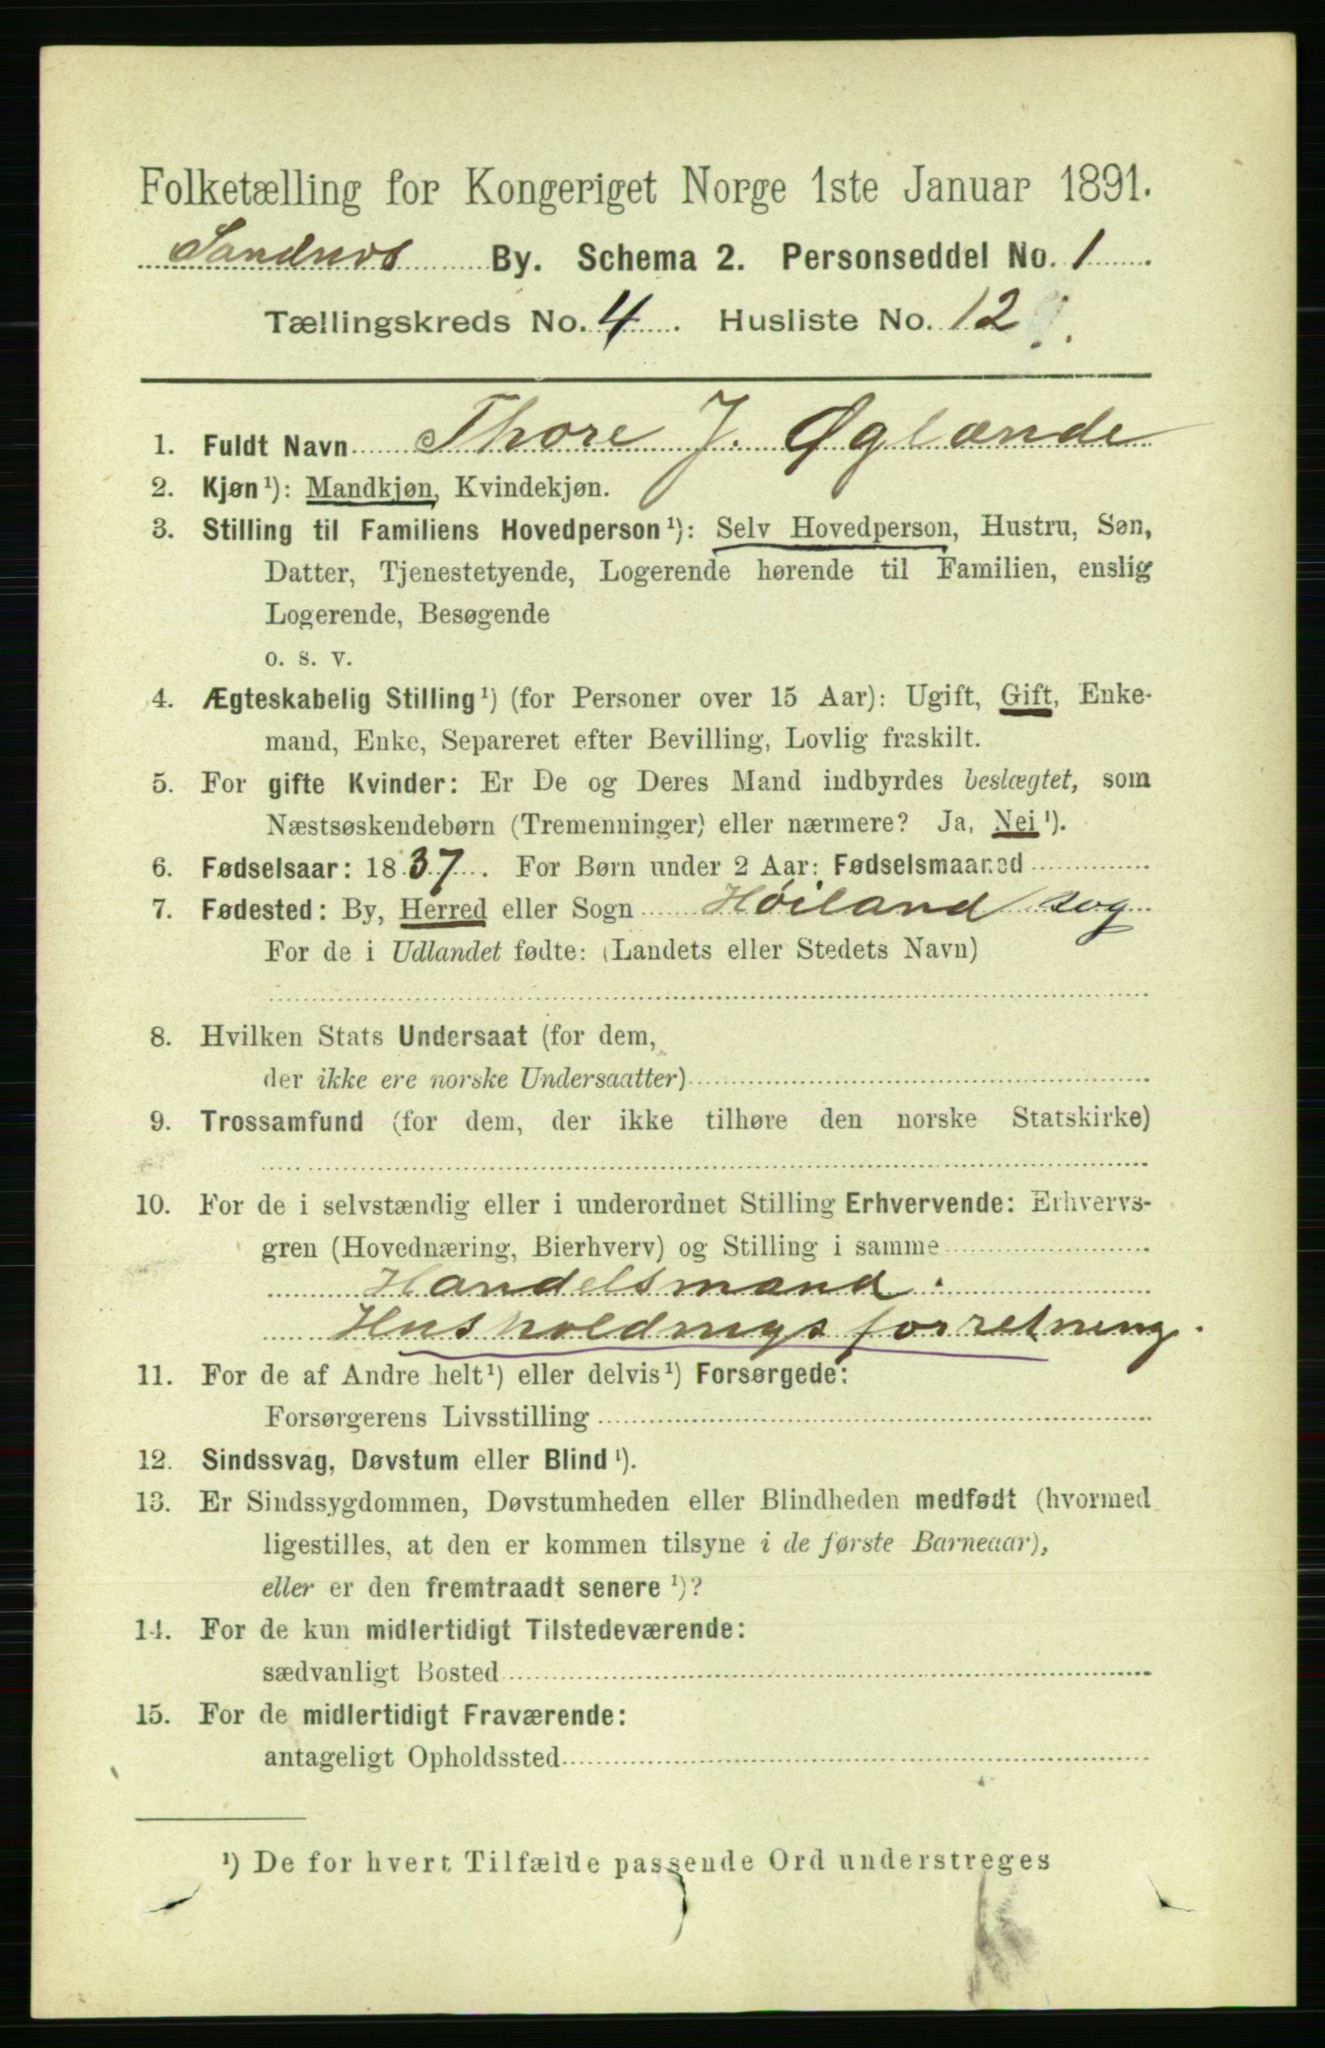 Folketælling for Kongeriget Norge 1ste Januar 1891.
Sandnes By. Schema 2. Personseddel No. 1
Tællingskreds No. 4. Husliste No. 12
1. Fuldt Navn Thore J. Øglænde
2. Kjøn¹): Mandkjøn, Kvindekjøn.
3. Stilling til Familiens Hovedperson¹): Selv Hovedperson, Hustru, Søn,
Datter, Tjenestetyende, Logerende hørende til Familien, enslig
Logerende, Besøgende
o. s. v.
4. Ægteskabelig Stilling¹) (for Personer over 15 Aar): Ugift, Gift, Enke-
mand, Enke, Separeret efter Bevilling, Lovlig fraskilt.
5. For gifte Kvinder: Er De og Deres Mand indbyrdes beslægtet, som
Næstsøskendebørn (Tremenninger) eller nærmere? Ja, Nei¹).
6. Fødselsaar: 1837. For Børn under 2 Aar: Fødselsmaaned
7. Fødested: By, Herred eller Sogn Høiland sog
For de i Udlandet fødte: (Landets eller Stedets Navn)
8. Hvilken Stats Undersaat (for dem,
der ikke ere norske Undersaatter)
9. Trossamfund (for dem, der ikke tilhøre den norske Statskirke)
10. For de i selvstændig eller i underordnet Stilling Erhvervende: Erhvervs-
gren (Hovednæring, Bierhverv) og Stilling i samme
Handelsmand.
Husholdnigsforretning.
11. For de af Andre helt¹) eller delvis¹) Forsørgede:
Forsørgerens Livsstilling
12. Sindssvag, Døvstum eller Blind¹).
13. Er Sindssygdommen, Døvstumheden eller Blindheden medfødt (hvormed
ligestilles, at den er kommen tilsyne i de første Barneaar),
eller er den fremtraadt senere¹)?
14. For de kun midlertidigt Tilstedeværende:
sædvanligt Bosted
15. For de midlertidigt Fraværende:
antageligt Opholdssted
¹) De for hvert Tilfælde passende Ord understreges